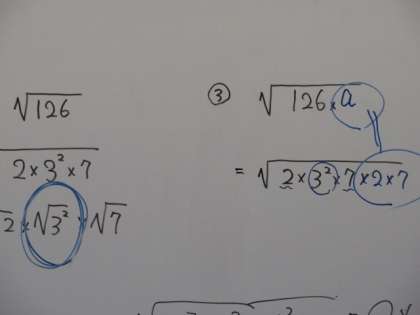 √126
2×3²×7
√2×√3²×√7
③ √126×a
= √2×3²×7×2×7